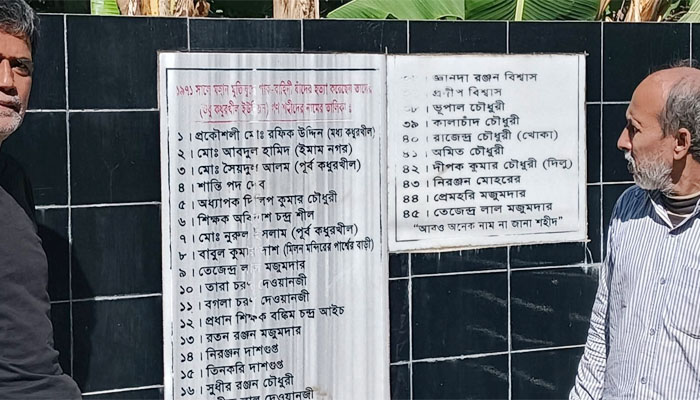 ১৯৭১ সালে মহান মুক্তিযুদ্ধে পাক-বাহিনী যাঁদের হত্যা করেছেন তাদের
(শুধু কধুরখীল ইউনিয়ন) শহীদের নামের তালিকা
১। প্রকৌশলী মোঃ রফিক উদ্দিন (মধ্য কধুরখীল)
২। মোঃ আবদুল হামিদ (ইমাম নগর)
৩। মোঃ সৈয়দুল আলম (পূর্ব কধুরখীল)
৪। শান্তি পদ দেব
৫। অধ্যাপক দিলপ কুমার চৌধুরী
৬। শিক্ষক অবিনাশ চন্দ্র শীল
৭। মোঃ নুরুল ইসলাম (পূর্ব কধুরখীল)
৮। বাবুল কুমার দাশ (মিলন মন্দিরের পার্শ্বের বাড়ী)
৯। তেজেন্দ্র লাল মজুমদার
১০। তারা চরণ দেওয়ানজী
১১। বগলা চরণ দেওয়ানজী
১২। প্রধান শিক্ষক বঙ্কিম চন্দ্র আইচ
১৩। রতন রঞ্জন মজুমদার
১৪। নিরঞ্জন দাশগুপ্ত
১৫। তিনকরি দাশগুপ্ত
১৬। সুধীর রঞ্জন চৌধুরী
লাল দেওয়ানজী
। জ্ঞানদা রঞ্জন বিশ্বাস
প্রদীপ বিশ্বাস
। ভূপাল চৌধুরী
৩৯। কালাচাঁদ চৌধুরী
৪০। রাজেন্দ্র চৌধুরী (খোকা)
৪১। অমিত চৌধুরী
৪২। দীপক কুমার চৌধুরী (দিলু)
৪৩। নিরঞ্জন মোহরের
৪৪। প্রেমহরি মজুমদার
৪৫। তেজেন্দ্র লাল মজুমদার
"আরও অনেক নাম না জানা শহীদ"